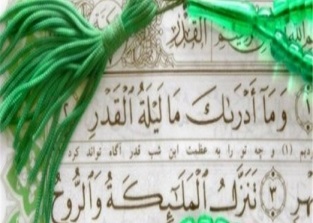 القدر
وَمَآ أَدْرَىٰكَ مَا لَيْلَةُ ٱلْقَدْرِ ٢
دیم (۱) و چه تو را به عظمت این شب قدر آگاه تواند کرد
٣ تَنَزَّلُ ٱلْمَلَٰٓئِكَةُ وَٱلرُّوحُ